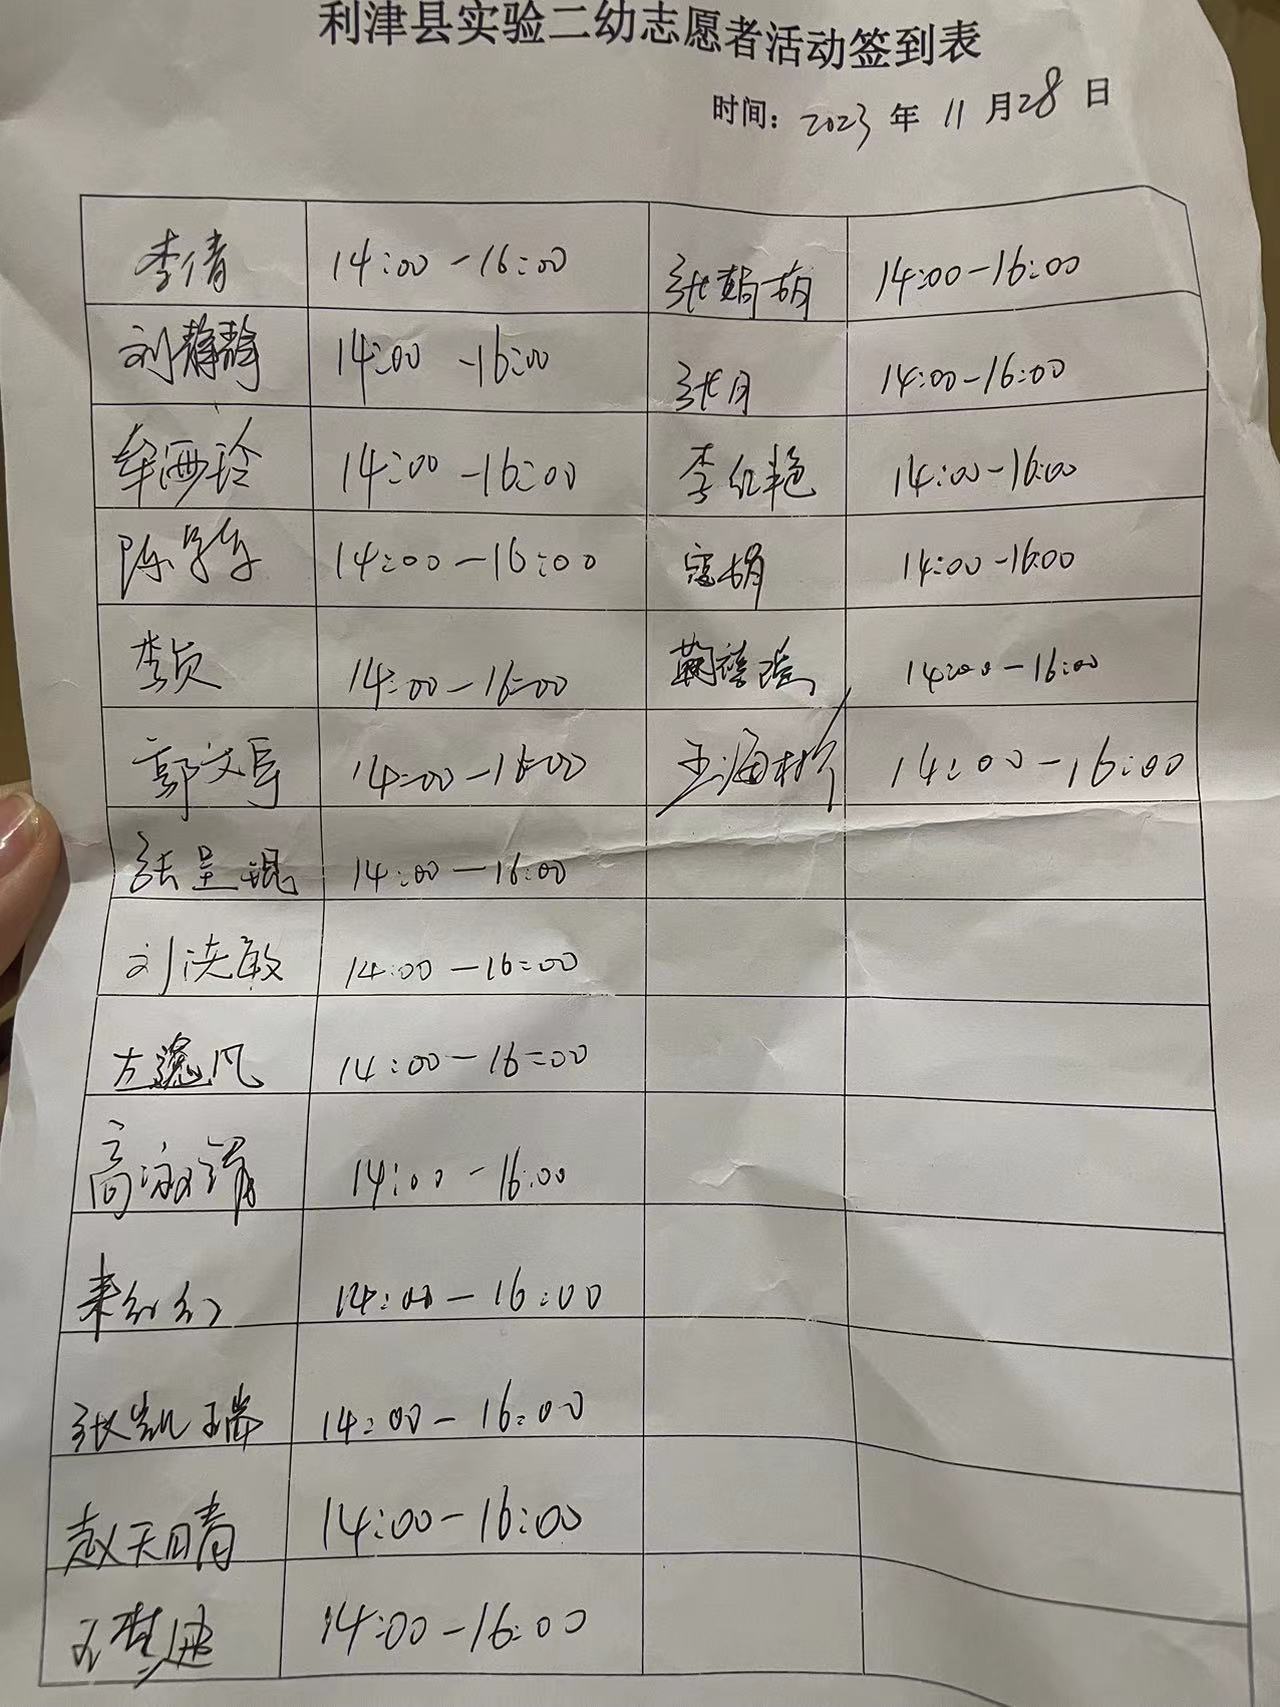 利津县实验二幼志愿者活动签到表
时间：2023 年 11 月 28 日
李倩 14:00-16:00 张 14:00-16:00
刘静静 14:00-16:00 张月 14:00-16:00
牟洒玲 14:00-16:00 李红艳 14:00-16:00
陈 14:00-16:00 寇娟 14:00-16:00
李贞 14:00-16:00 14:00-16:00
郭文 14:00-16:00 王海 14:00-16:00
张呈琨 14:00-16:00
刘洪敏 14:00-16:00
方逸凡 14:00-16:00
高淑娟 14:00-16:00
来红红 14:00-16:00
张凯瑞 14:00-16:00
赵天晴 14:00-16:00
王 14:00-16:00